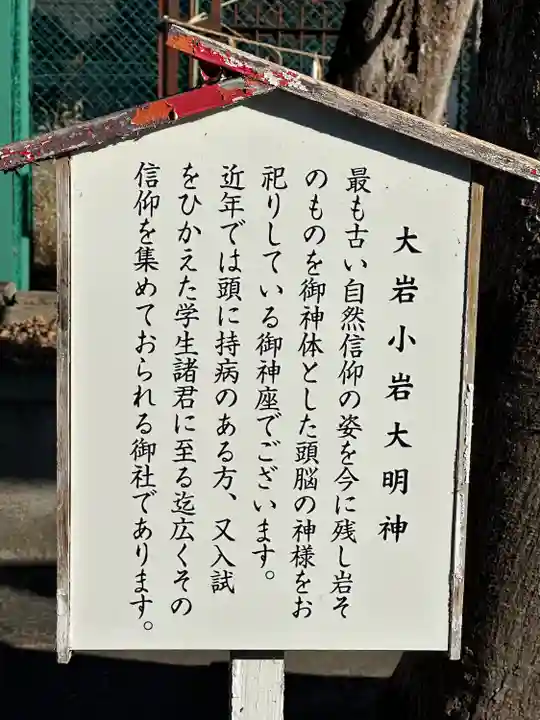 大岩小岩大明神
最も古い自然信仰の姿を今に残し岩そ
のものを御神体とした頭脳の神様をお
祀りしている御神座でございます。
近年では頭に持病のある方、又入試
をひかえた学生諸君に至る迄広くその
信仰を集めておられる御社であります。